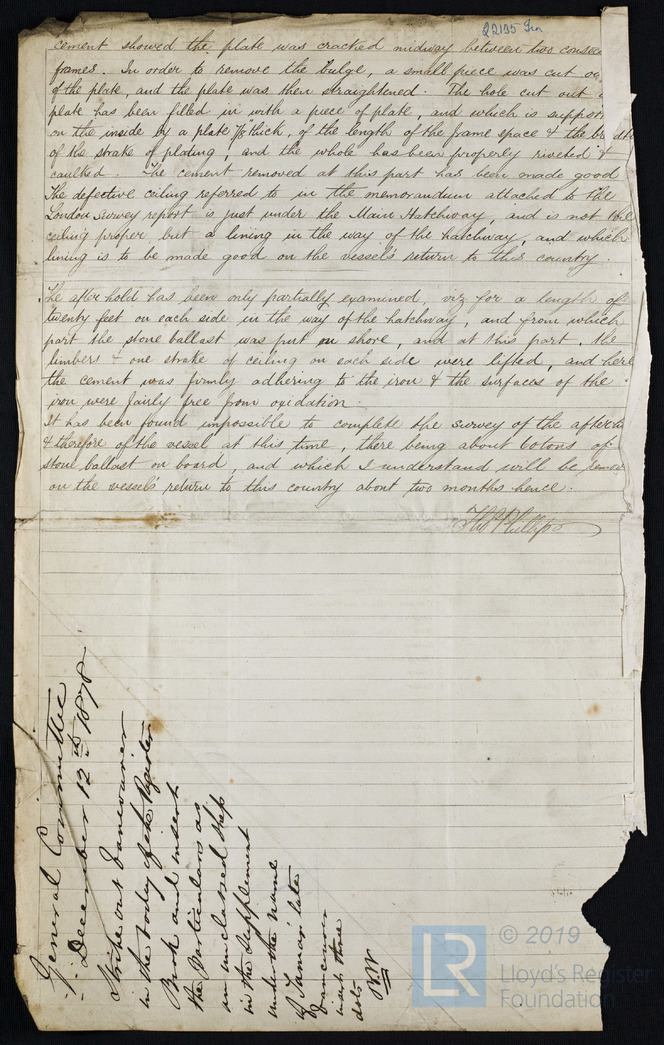 22135 Irn
cement showed the plate was cracked midway between two consec
frames. In order to remove the bulge, a small piece was cut ou
of the plate, and the plate was then straightened. The hole cut out
plate has been filled in with a piece of plate, and which is support
on the inside by a plate thick, of the length of the frame space & the br dth
of the strake of plating, and the whole has been properly riveted &
caulked. The cement removed at this part has been made good
The defective ceiling referred to in the memorandum attached to the
London Survey report is just under the Main Hatchway, and is not the
ceiling proper but a lining in the way of the hatchway, and which
lining is to be made good on the vessel's return to this country.
The after hold has been only partially examined, viz for a length of
twenty feet on each side in the way of the hatchway, and from which
part the stone ballast was put on shore, and at this part, the
limbers & one strake of ceiling on each side were lifted, and here
the cement was firmly adhering to the iron & the surfaces of the
iron were fairly free from oxidation.
It has been found impossible to complete the survey of the after
& therefore of the vessel at this time, there being about 60 tons of
stone ballast on board, and which I understand will be remov
on the vessel's return to this country about two months hence.
Phillips
General Committee
December 12th 1878
Strike out Vancouver
in the body of the Register
Book and insert
the Particulars as
an unclassed Ship
in the Supplement
under the name
of Tamar late
Vancouver
with three
dots
LR
© 2019
Lloyd's Register
Foundation